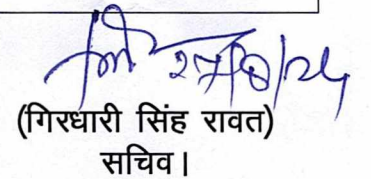 27/8/24
(गिरधारी सिंह रावत)
सचिव।